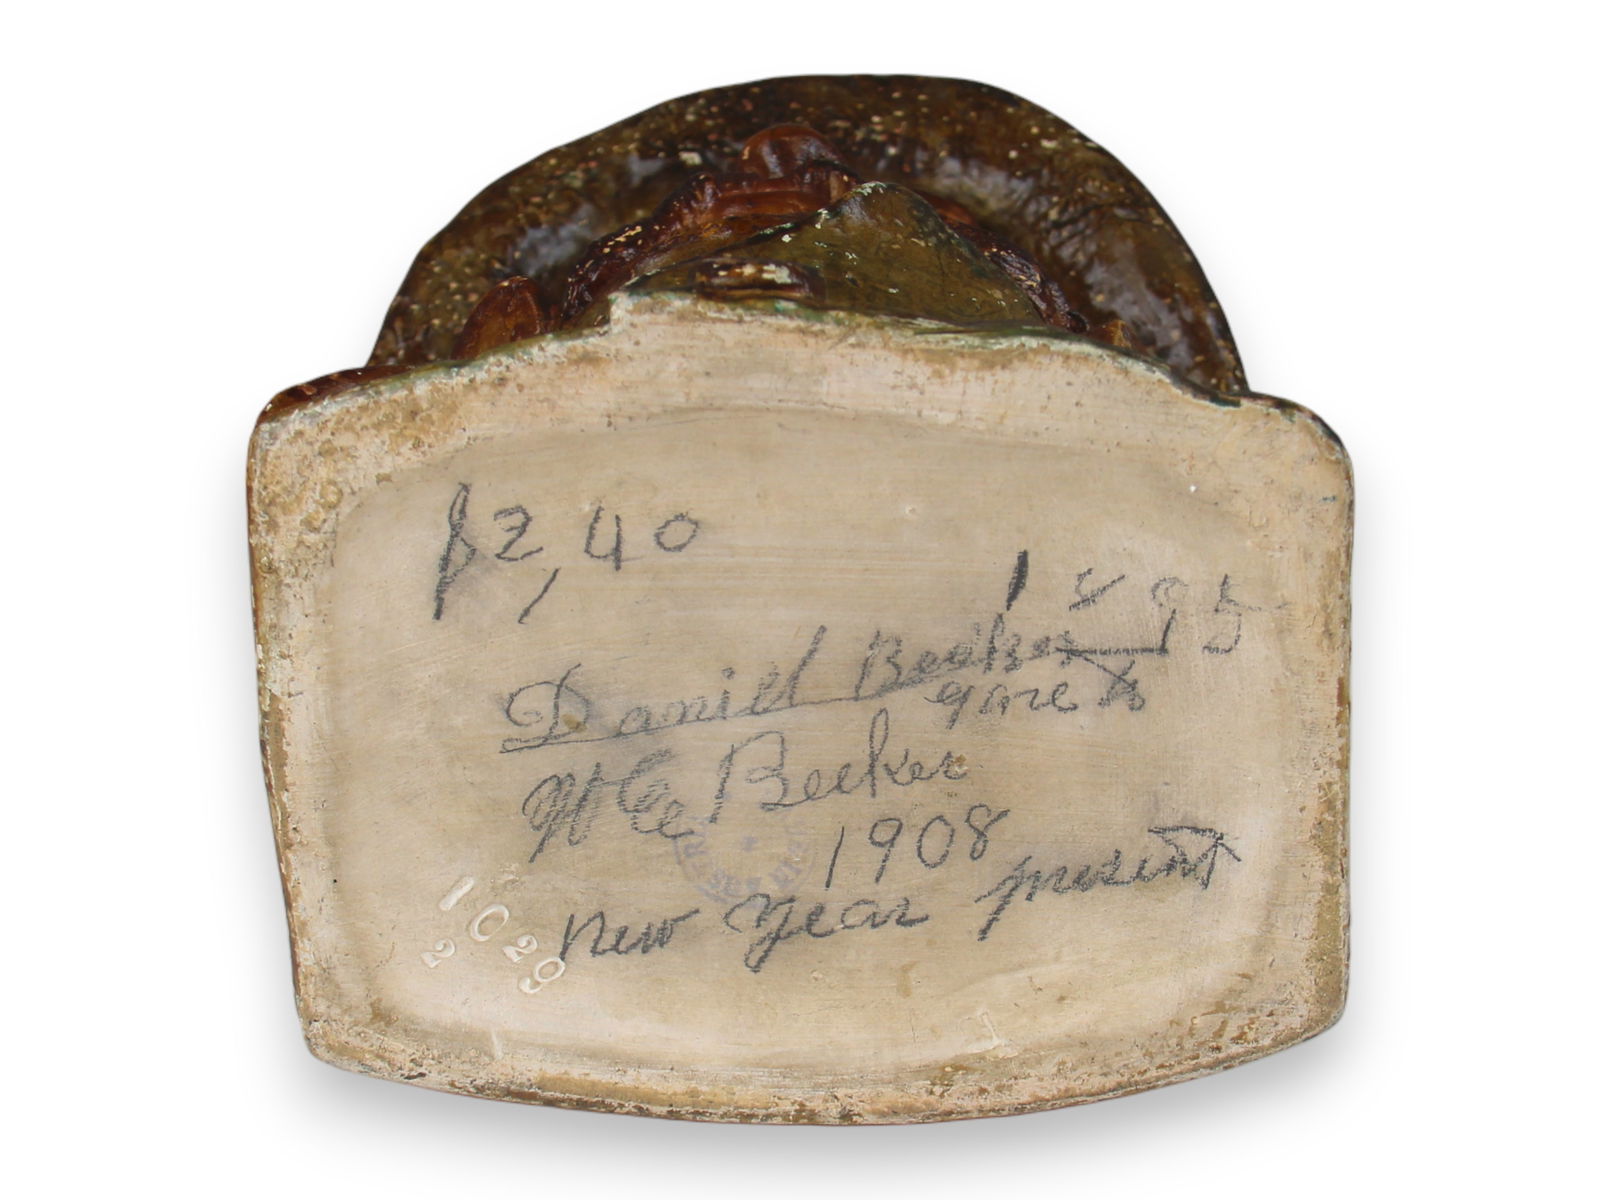 $2,40
1895
Daniel Becker
gave to
Wm Becker
1908
New Year present
1029
2